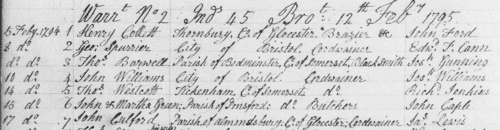 Warrt. No 2 Ind 45 Brot. 12th Feby. 1795
5 Feby. 1794 1 Henry Collett Thornbury, C. of Glocester Brazier &c John Ford
8 do. 2 Geo: Spurrier City of Bristol. Cordwainer Edwd. T. Cann
do. do. 3 Thos. Barwell Parish of Bedminster, C. of Somerset, Black Smith Jos: Gunning
10 do. 4 John Williams City of Bristol. Cordwainer Jos: Williams
14 do. 5 Thos. Westcott Tickenham, C. of Somerset, do. Richd. Jenkins
15 do. 6 John & Martha Green; Parish of do. Butchers John Caple
17 do. 7 John Parish of Almondsbury, C. of Glocester; Cordwainer Jas. Lewis